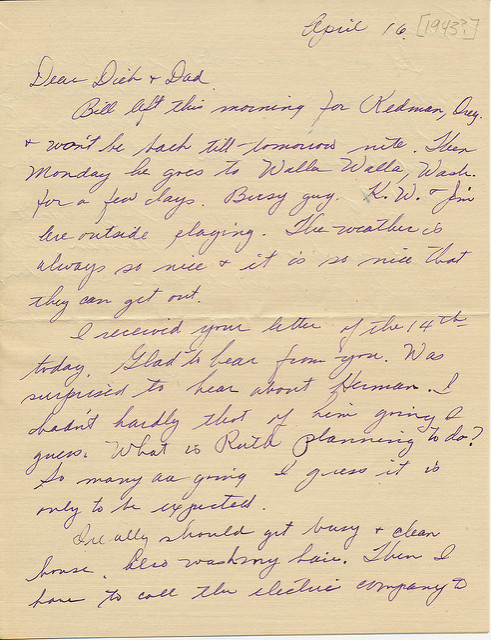 April 16. [1943?]
Dear Dick + Dad
Bill left this morning for Redman, Oreg.
+ won't be back till tomorrow nite. Then
Monday he goes to Walla Walla, Wash.
for a few days. Busy guy. K.W. + Jim
are outside playing. The weather is
always so nice + it is so nice that
they can get out.
I received your letter of the 14th
today. Glad to hear from you. Was
surprised to hear about Herman. I
hadn't hardly thot of him going I
guess. What is Ruth planning to do?
So many are going I guess it is
only to be expected.
I really should get busy + clean
house. Also wash my hair. Then I
have to call the electric company to